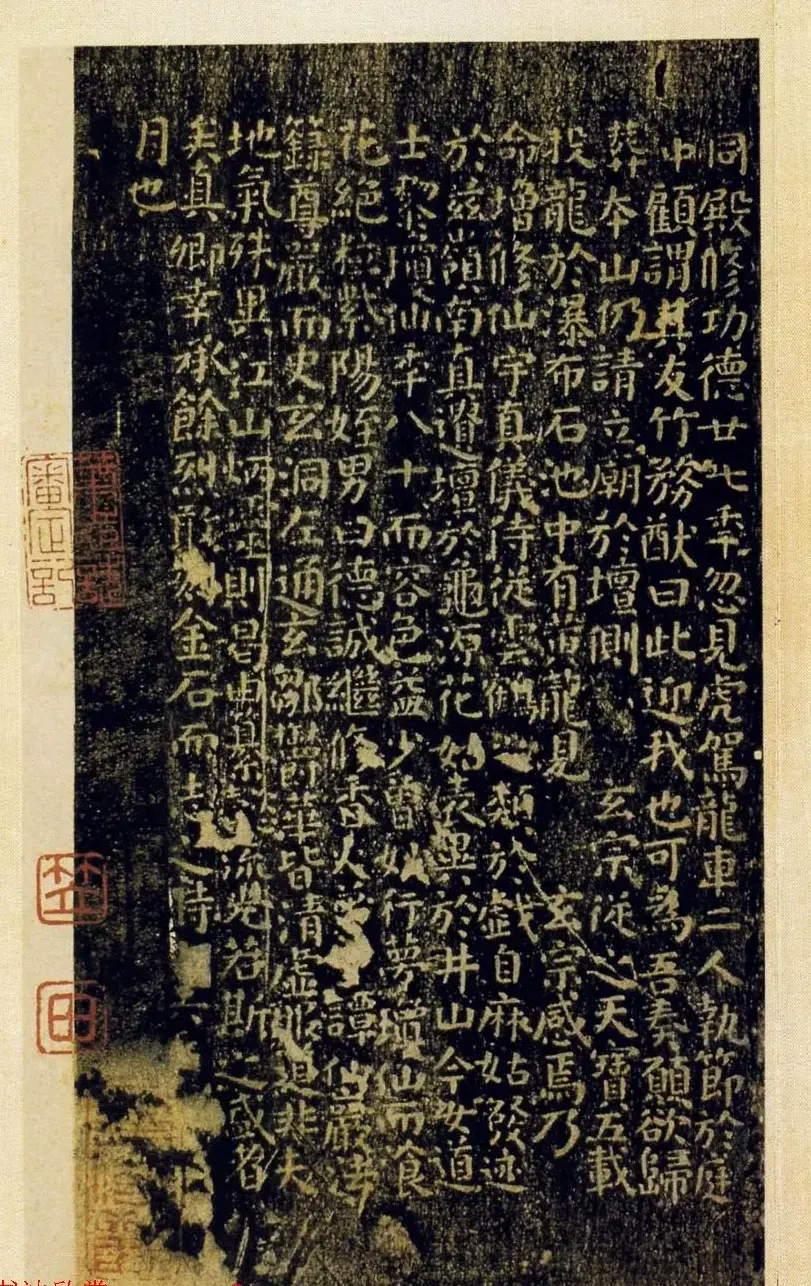 同殿修功德廿七年忽見虎駕龍車二人執節於庭
中顧謂其友竹務猷曰此迎我也可為吾奏願欲歸
葬本山仍請立廟於壇側玄宗從之天寶五載
投龍於瀑布石池中有黃龍見玄宗感焉乃
命增修仙宇真儀侍從雲鶴之類於戲自麻姑發迹
於茲嶺南真遺壇於龜源花姑表異於井山今女道
士黎瓊仙年八十而容色益少曾妙行夢瓊仙而飡
花絕粒紫陽姪男曰德誠繼修香火譚仙巖法
籙尊嚴而史玄洞左通玄鄒鬱華皆清虛服道非夫
地氣殊異江山炳靈則曷由纂懿流光若斯之盛者
矣真卿幸承餘烈敢刻金石而志之時六
月也